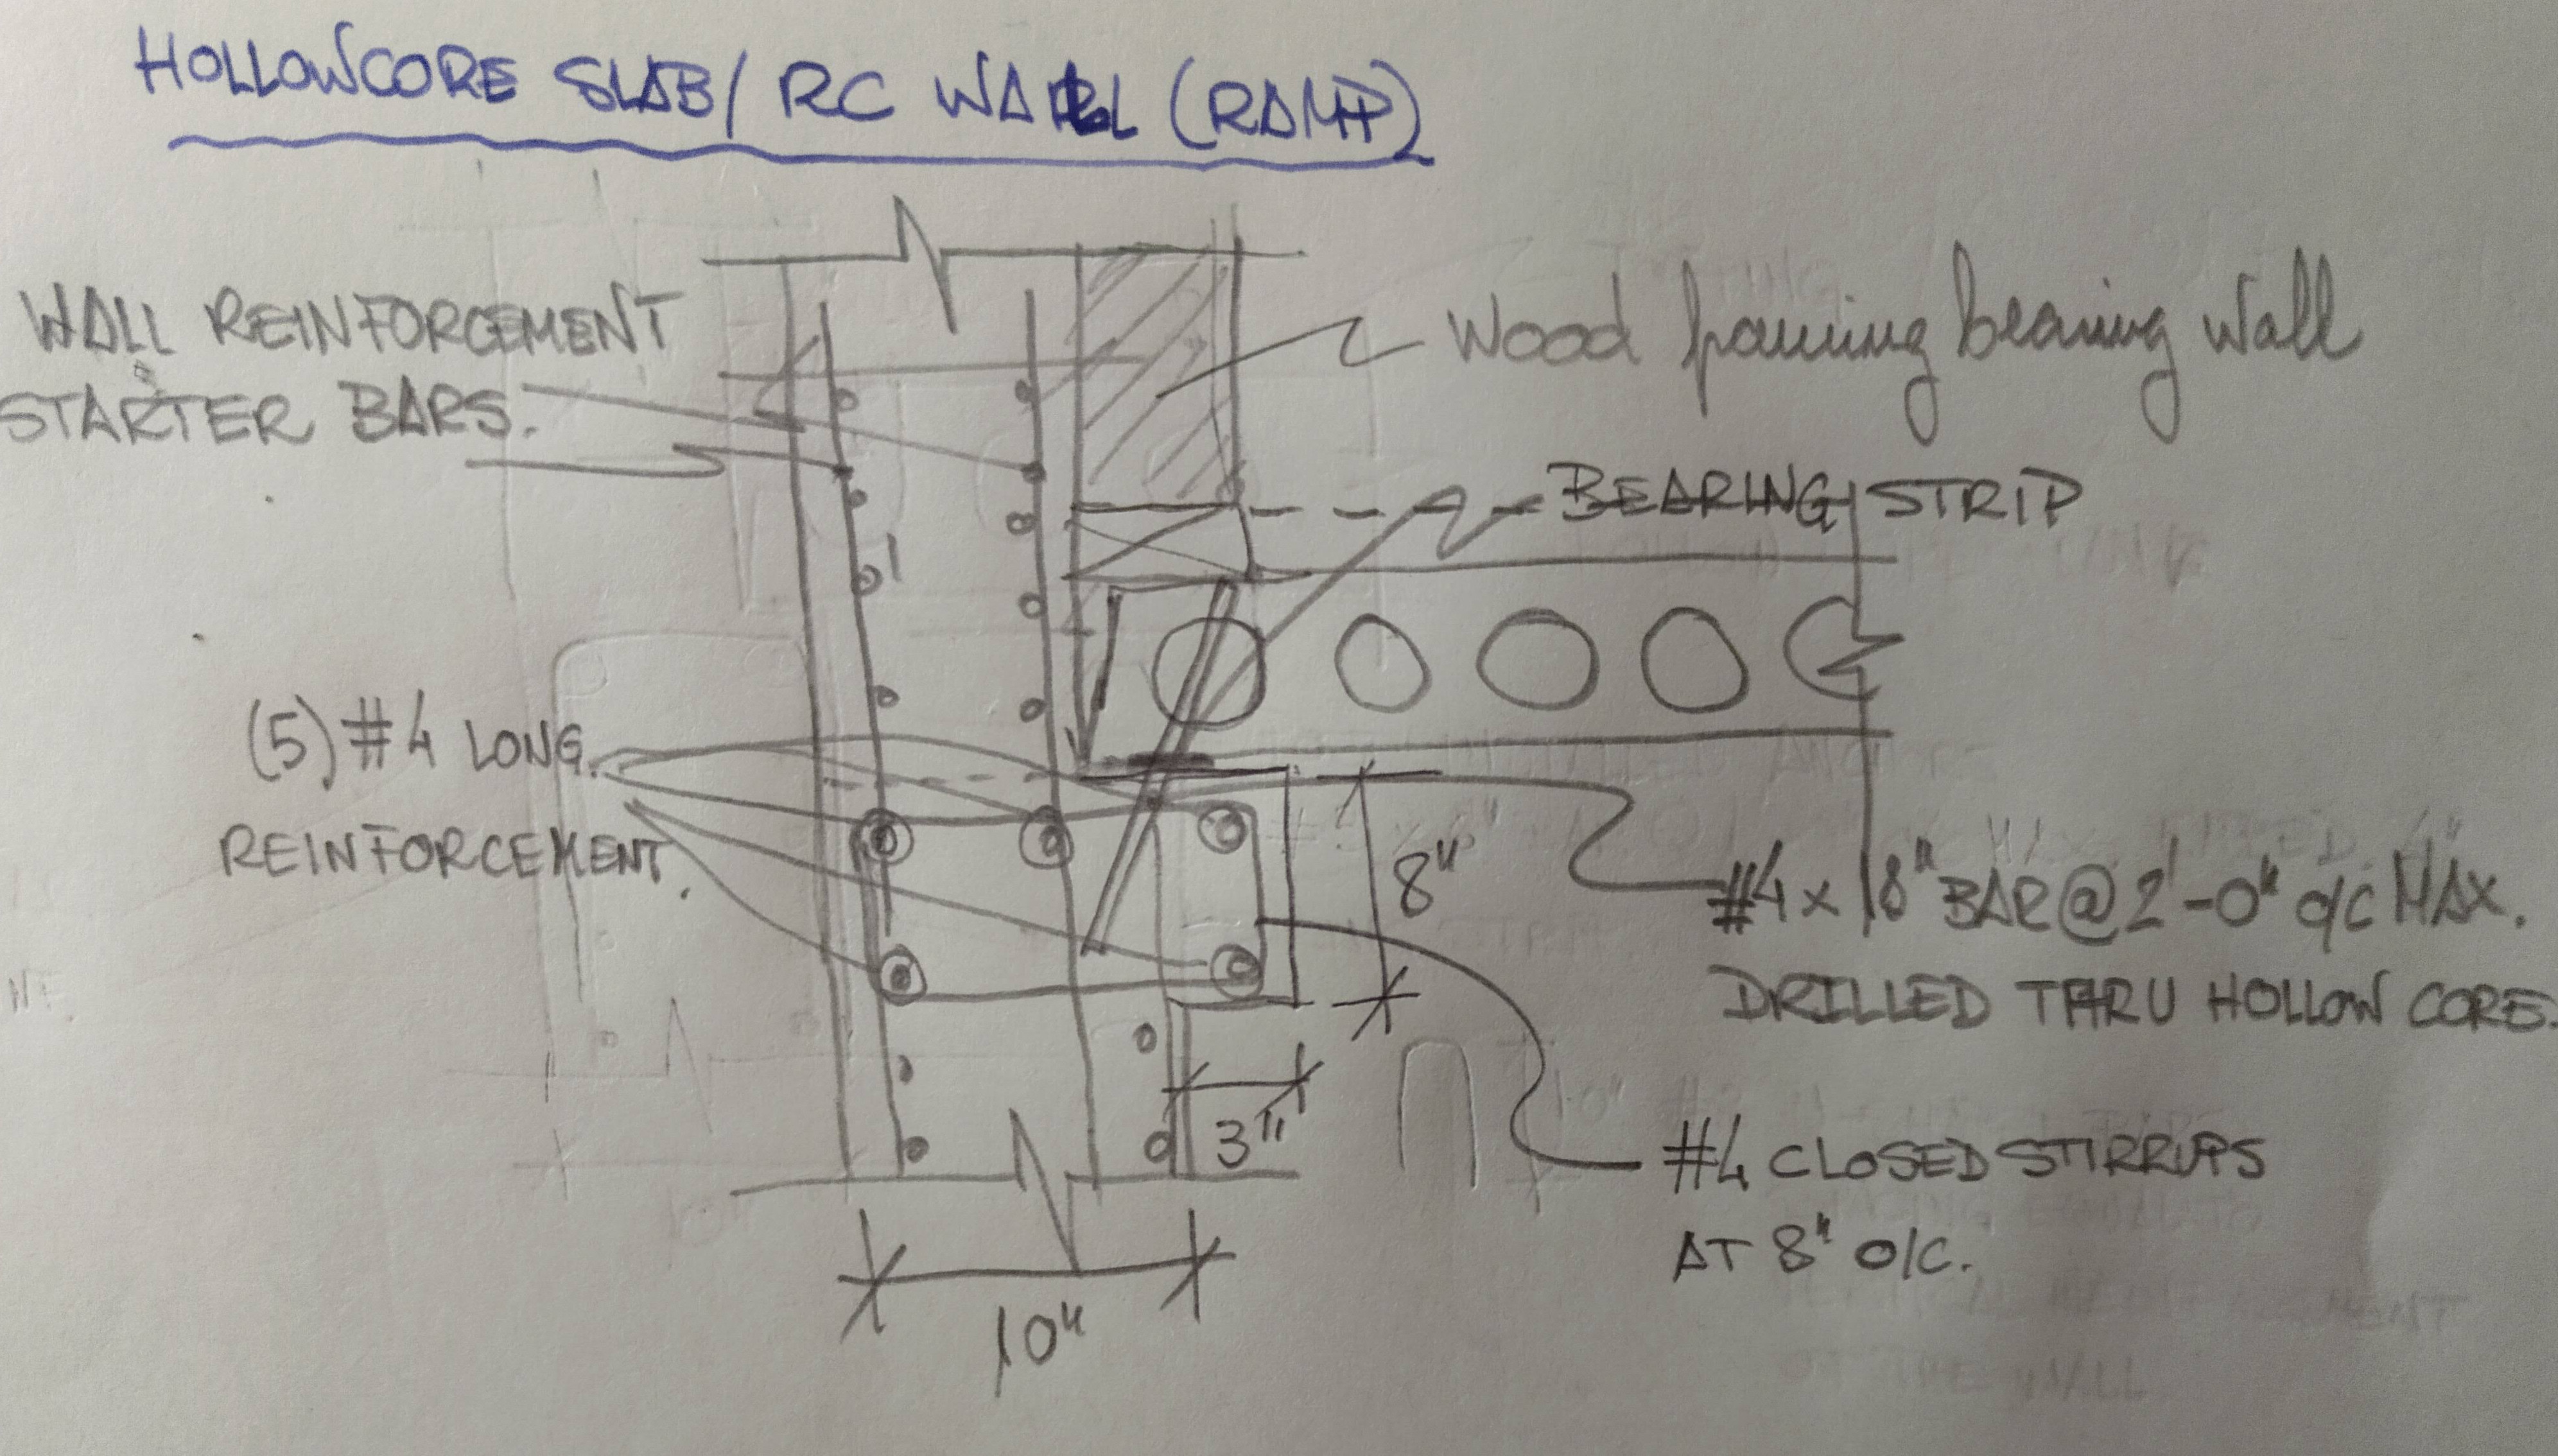 HOLLOWCORE SLAB/ RC WALL (RAMP)
WALL REINFORCEMENT
STARTER BARS.
Wood framing bearing wall
BEARING STRIP
(5) #4 LONG.
REINFORCEMENT.
8"
#4 x 18" BAR @ 2'-0" o/c MAX.
DRILLED THRU HOLLOW CORE.
3"
#4 CLOSED STIRRUPS
AT 8" O/C.
10"